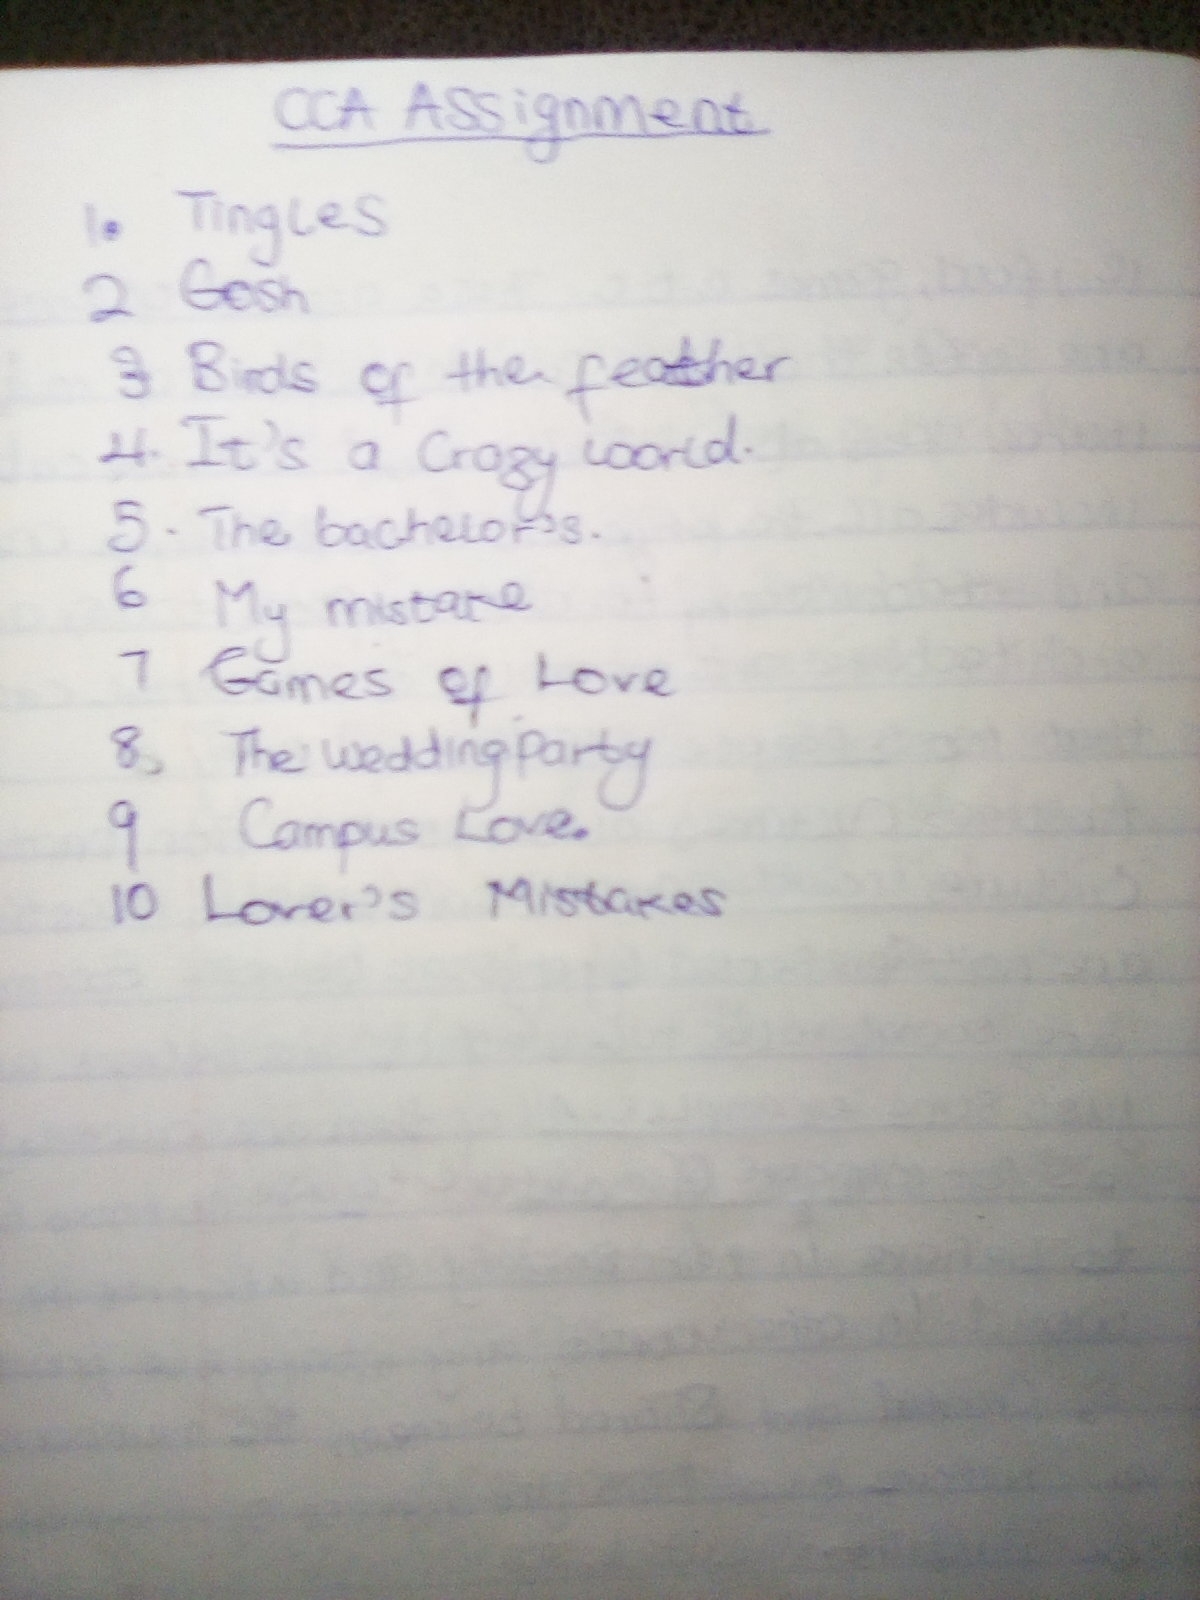 CCA Assignment
1. Tingles
2 Gosh
3 Birds of the feather
4. It's a Crazy world.
5. The bachelor's.
6 My mistake
7 Games of Love
8. The wedding Party
9 Campus Love.
10 Lover's Mistakes